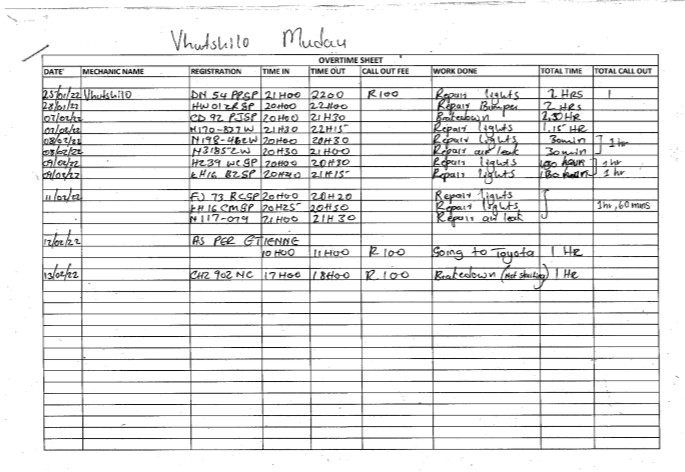 Vhutshilo Mudau
OVERTIME SHEET
DATE MECHANIC NAME REGISTRATION TIME IN TIME OUT CALL OUT FEE WORK DONE TOTAL TIME TOTAL CALL OUT
25/01/22 Vhutshilo DN 54 PPGP 21H00 2200 R100 Repair lights 2 HRS 1
28/01/22 HW01ZRGP 20H00 22H00 Repair Bumper 2 HRS
07/02/22 CD 92 PJGP 20H00 21H30 Breakdown 2,30HR
07/02/22 N170-827W 21H30 22H15 Repair lights 1.15 HR
08/02/22 N198-482W 20H00 20H30 Repair lights 30min 1 hr
08/02/22 N31857W 20H30 21H00 Repair air leak 30min
09/02/22 HZ39 WCGP 20H00 20H30 Repair lights 1 hr
09/02/22 LH16 BZGP 20H20 21H15 Repair lights 1 hr
11/02/22 FJ 73 RCGP 20H00 20H20 Repair lights
LH16 CMGP 20H25 20H50 Repair lights 1hr, 60 mins
N117-079 21H00 21H30 Repair air leak
12/02/22 AS PER ETIENNE
10H00 11H00 R100 Going to Toyota 1 HR
13/02/22 CHZ 902 NC 17H00 18H00 R.100 Breakedown (Not starting) 1 HR